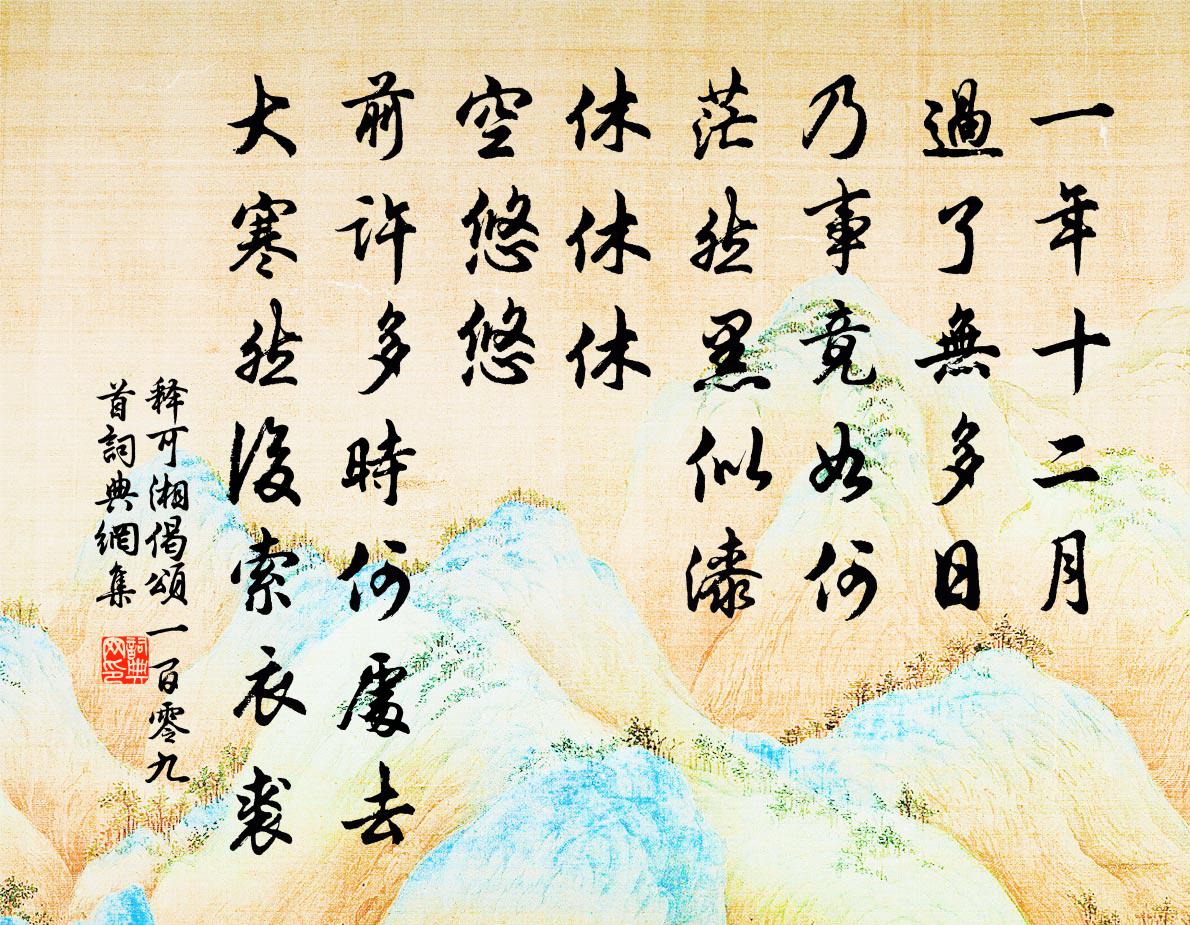 一年十二月
過了無多日
乃事竟如何
茫然黑似漆
休休休
空悠悠
前許多時何處去
大寒然後索衣裘
释可湘偈頌一百零九
首詞典網集
詞典
网印